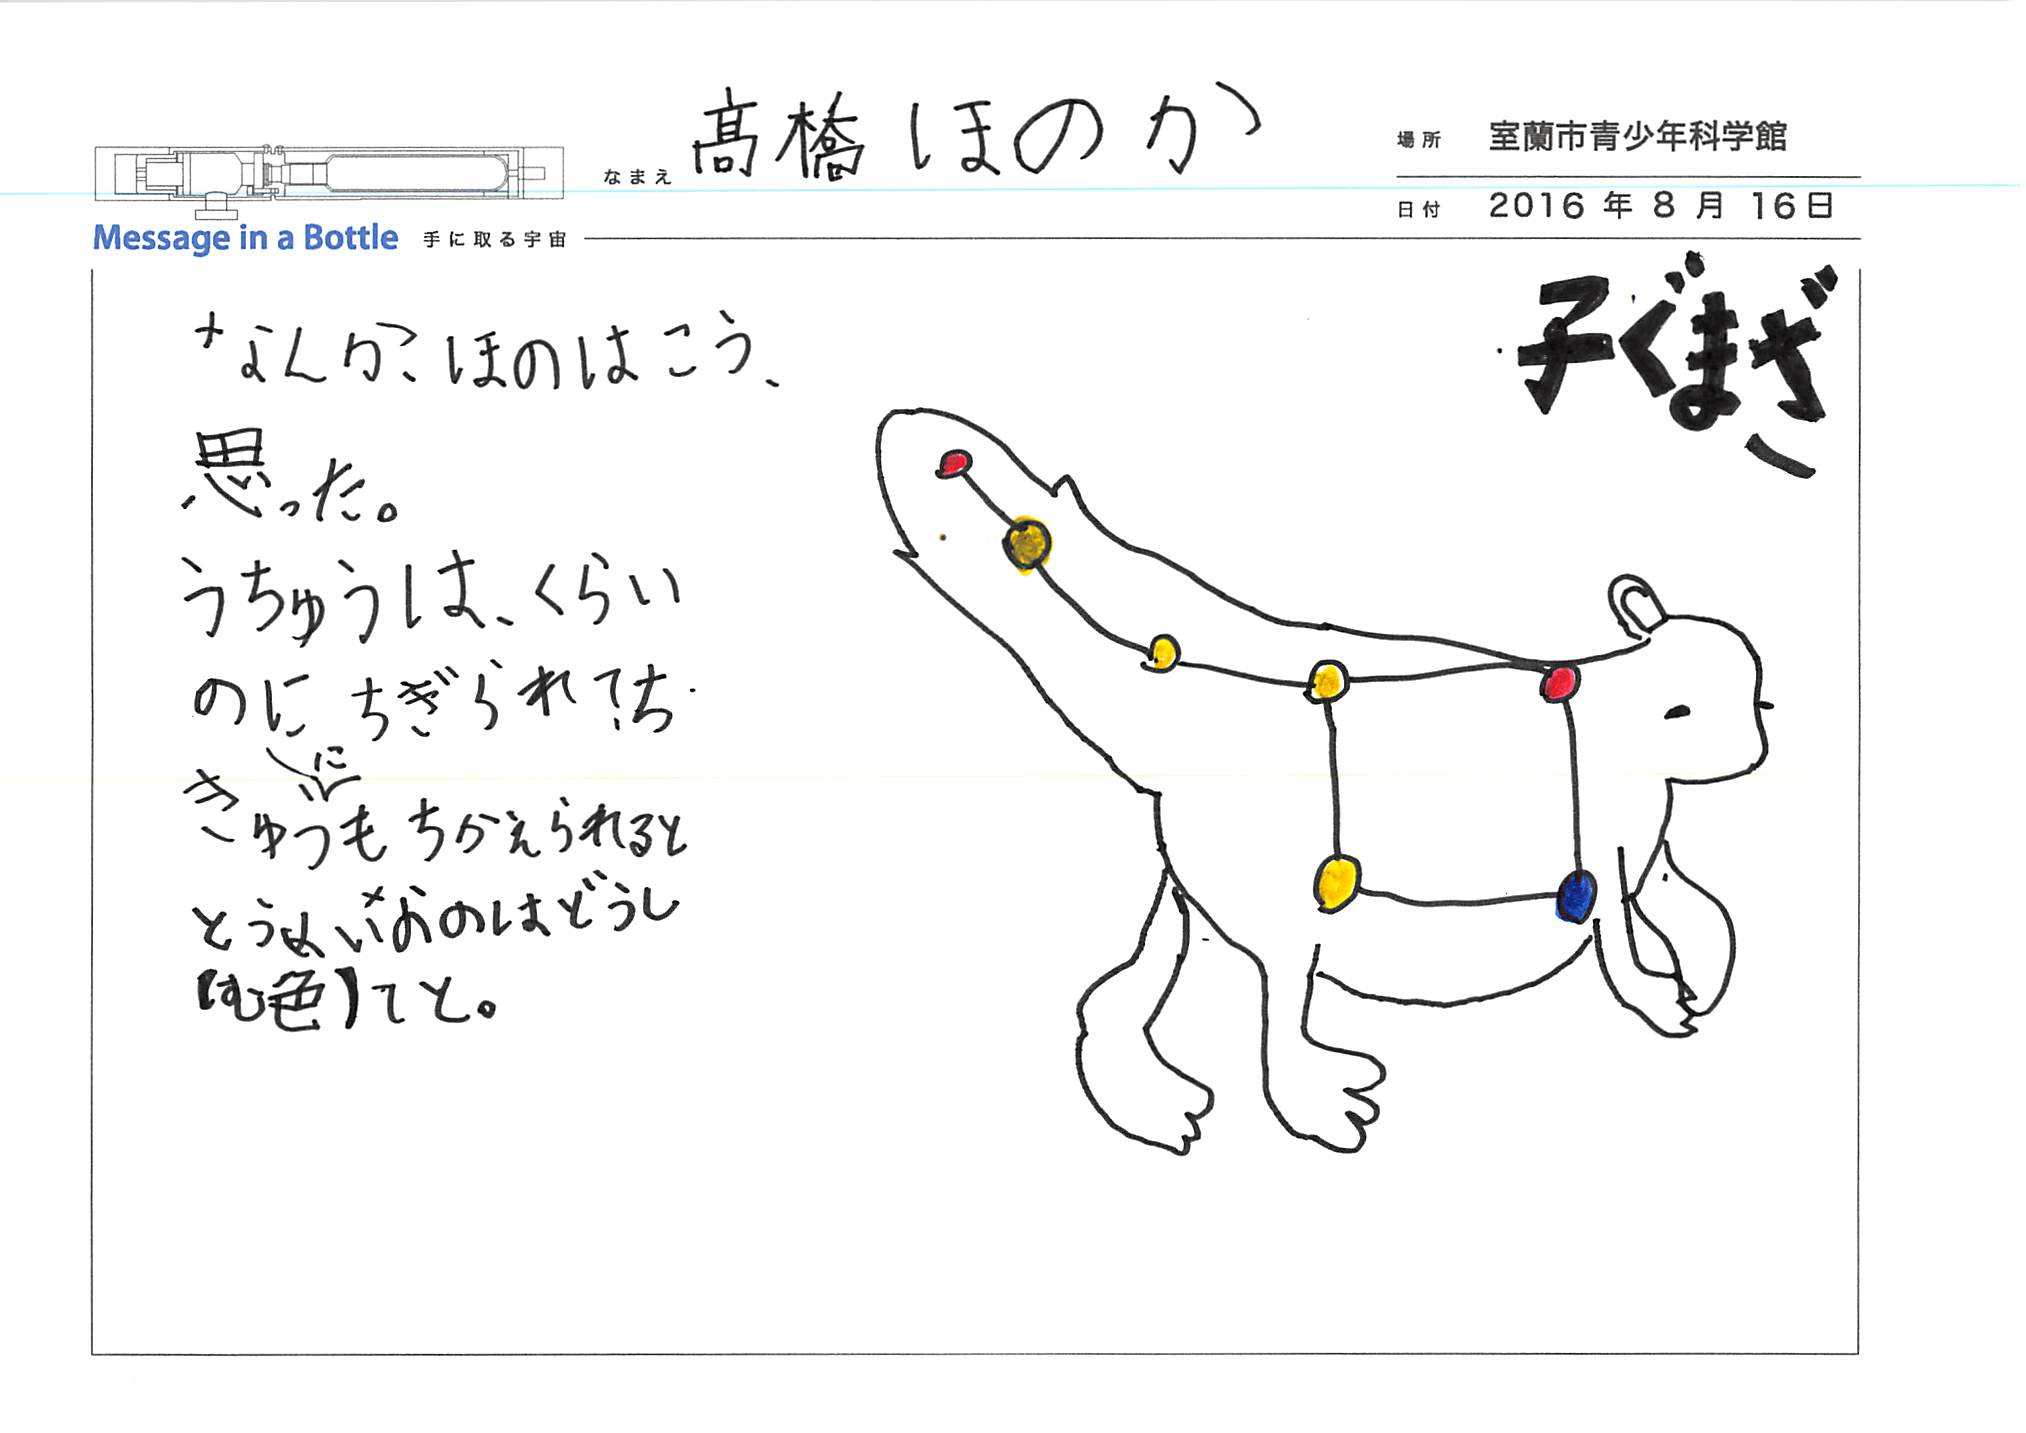 なまえ 髙橋 ほのか
場所 室蘭市青少年科学館
日付 2016 年 8 月 16日
Message in a Bottle 手に取る宇宙
子ぐまざ
なんか、ほのはこう、
思った。
うちゅうは、くらい
のに ちぎられ
に
もちかえられると
とうめいなのはどうし
【む色】てと。